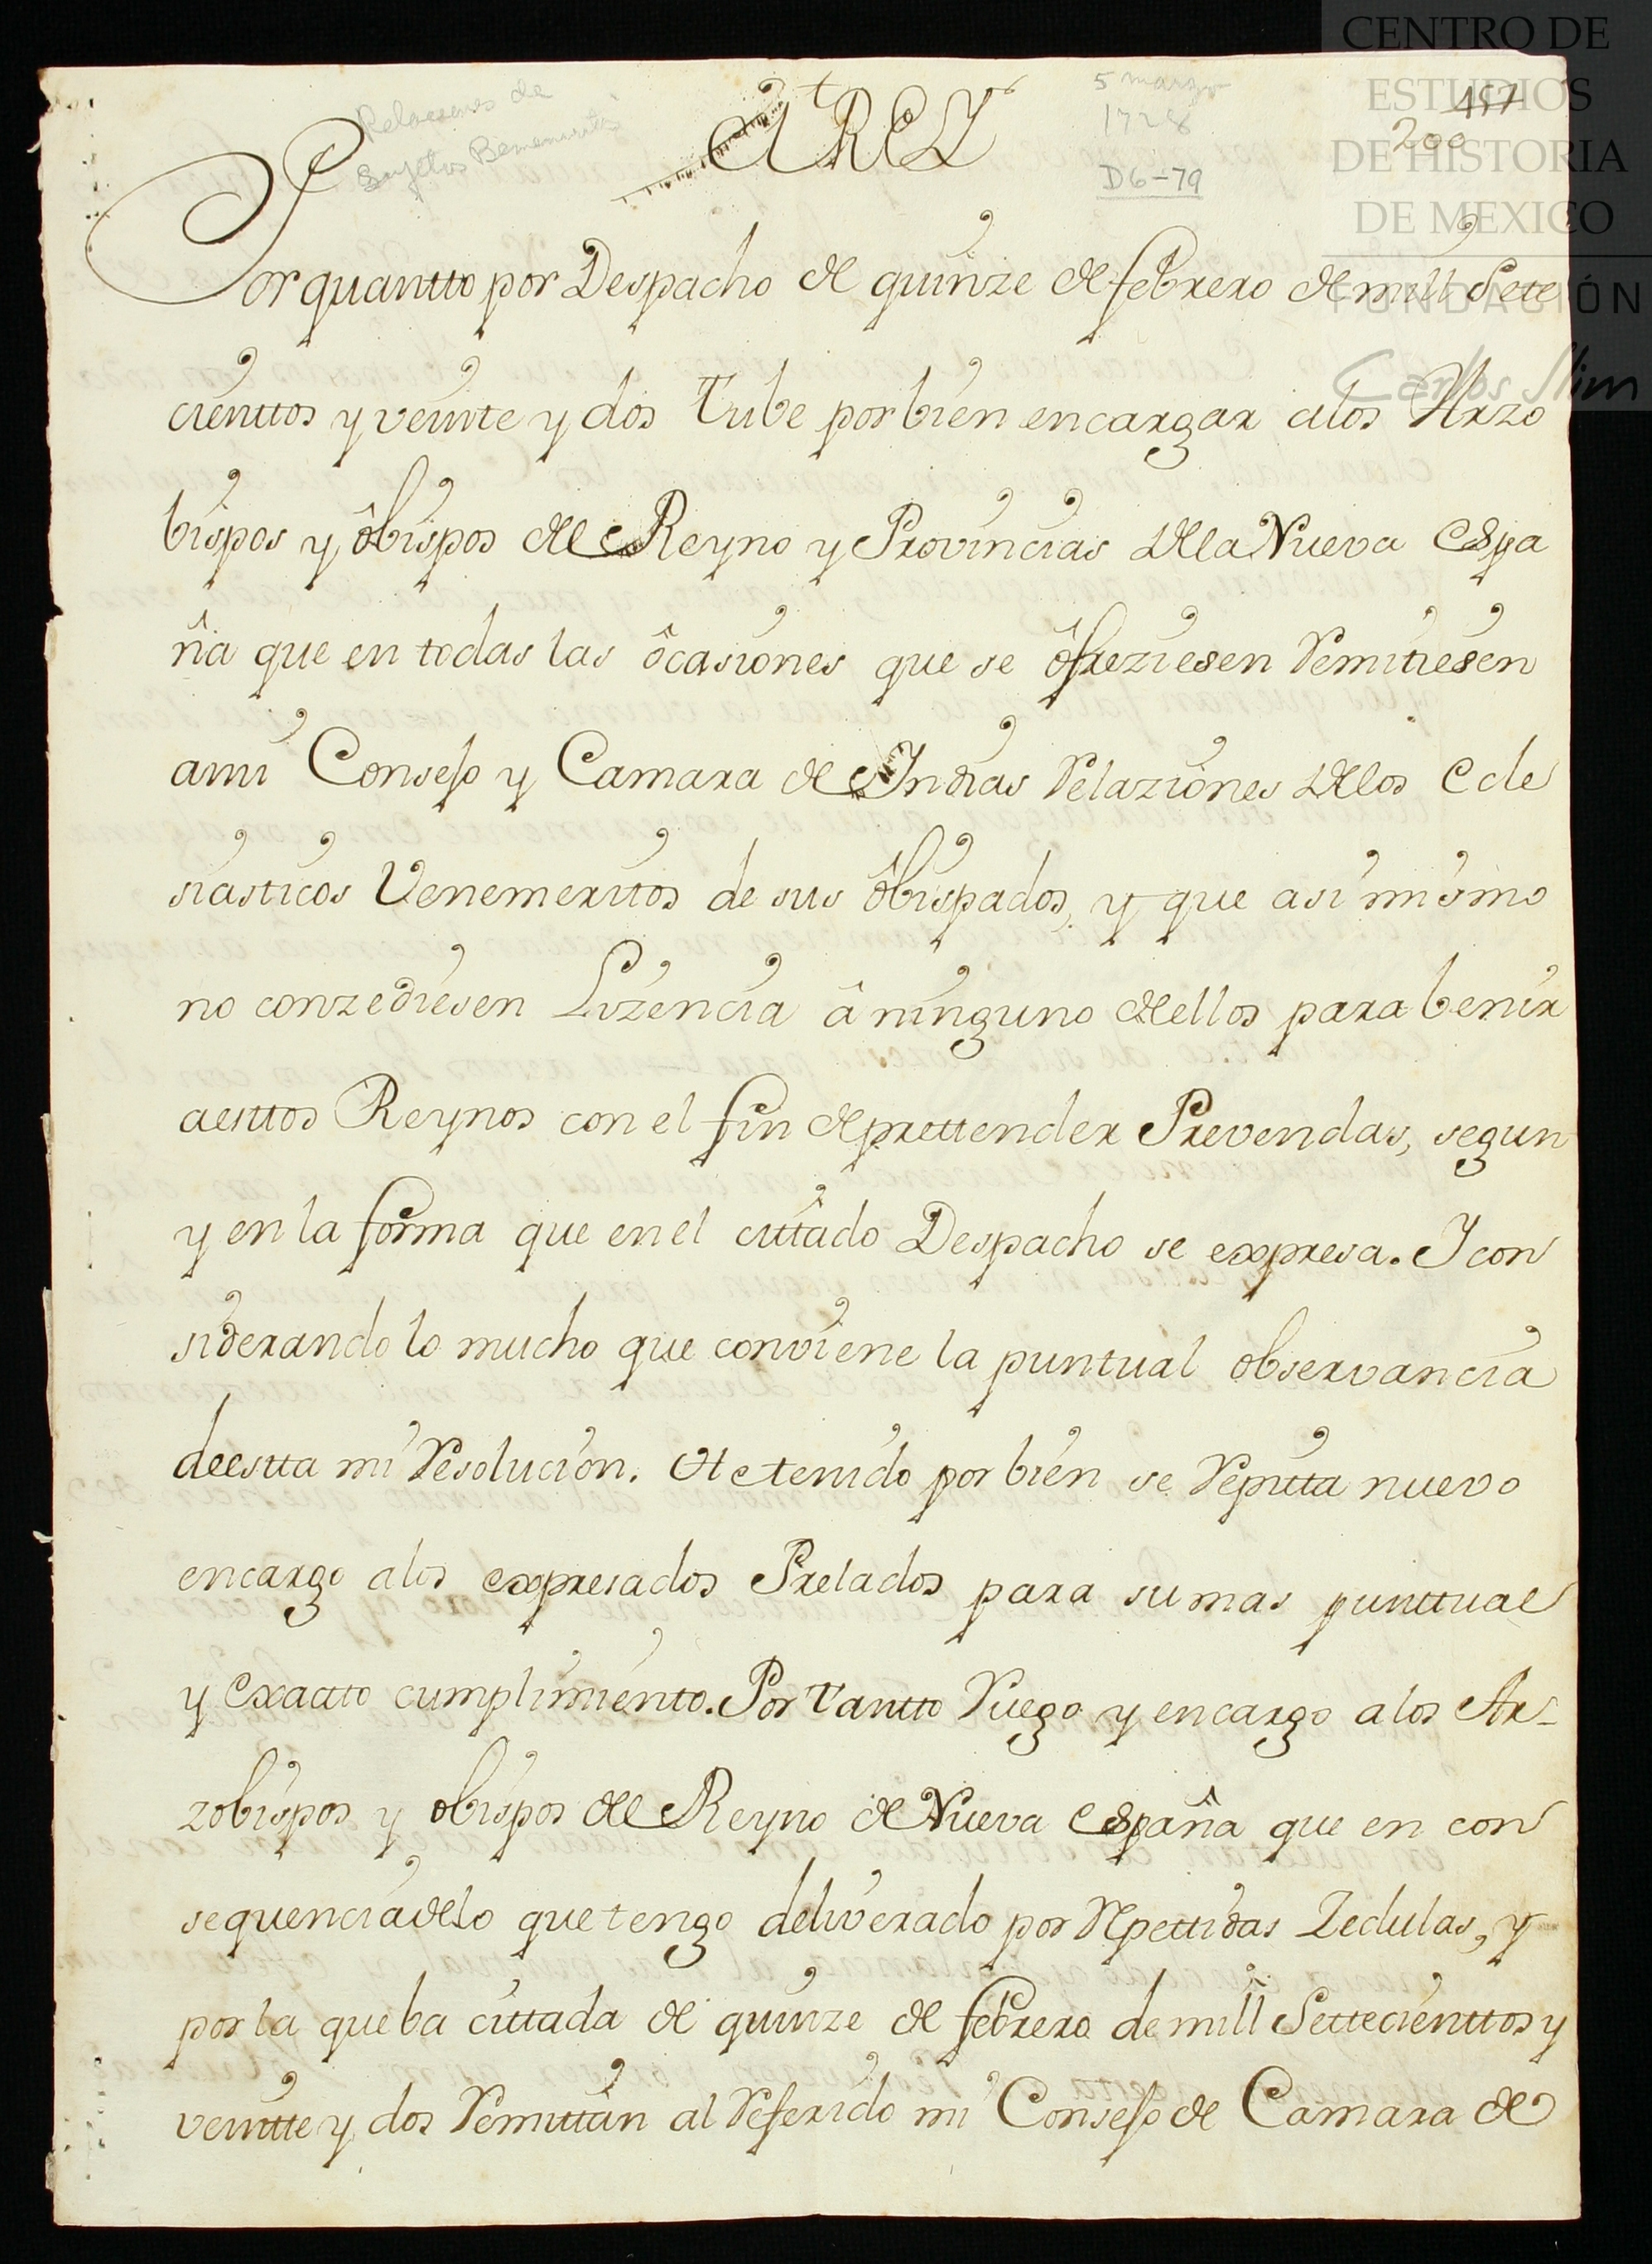 CENTRO DE
ESTUDIOS
DE HISTORIA
DE MEXICO
FUNDACIÓN
Carlos Slim
Relaciones de
Sugetos Benemeritos
5 marzo
1728
D6-79
200
El REY
Por quantto por Despacho de quinze de febrero de mill Sete
cienttos y veinte y dos Tube por bien encargar alos Arzo
bispos y ôbispos del Reyno y Provincias dela Nueva Espa
ña que en todas las ôcasiones que se ôfreziesen Remitiesen
ami Consejo y Camara de Indias Relaziones delos Ecle
siasticos Venemeritos de sus ôbispados, y que asi mismo
no conzediesen Lizencia â ninguno dellos para benir
aesttos Reynos con el fin deprettender Prevendas, segun
y en la forma que en el cittado Despacho se expresa. Y con
siderando lo mucho que conviene la puntual observancia
deestta mi Resolucion. He tenido por bien se Repitta nuevo
encargo alos expresados Prelados para su mas punttual
y exactto cumplimiento. Por Tantto Ruego y encargo alos Ar-
zobispos y obispos del Reyno de Nueva España que en con
sequencia delo que tengo deliverado por Repettidas Zedulas, y
por la que ba cittada de quinze de febrero de mill Settecienttos y
veintte y dos Remittan al Referido mi Consejo de Camara de